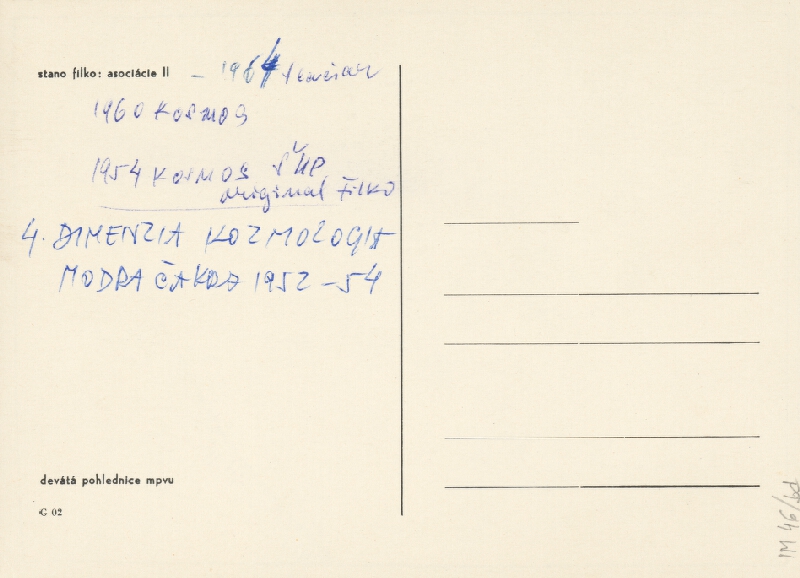 stano filko: asociácie II – 1964
1960 KOSMOS
1954 KOSMOS ŠUP
original FILKO
4. DIMENZIA KOZMOLOGIA
MODRA ČAKRA 1952 – 54
devátá pohlednice mpvu
G 02
IM 46/